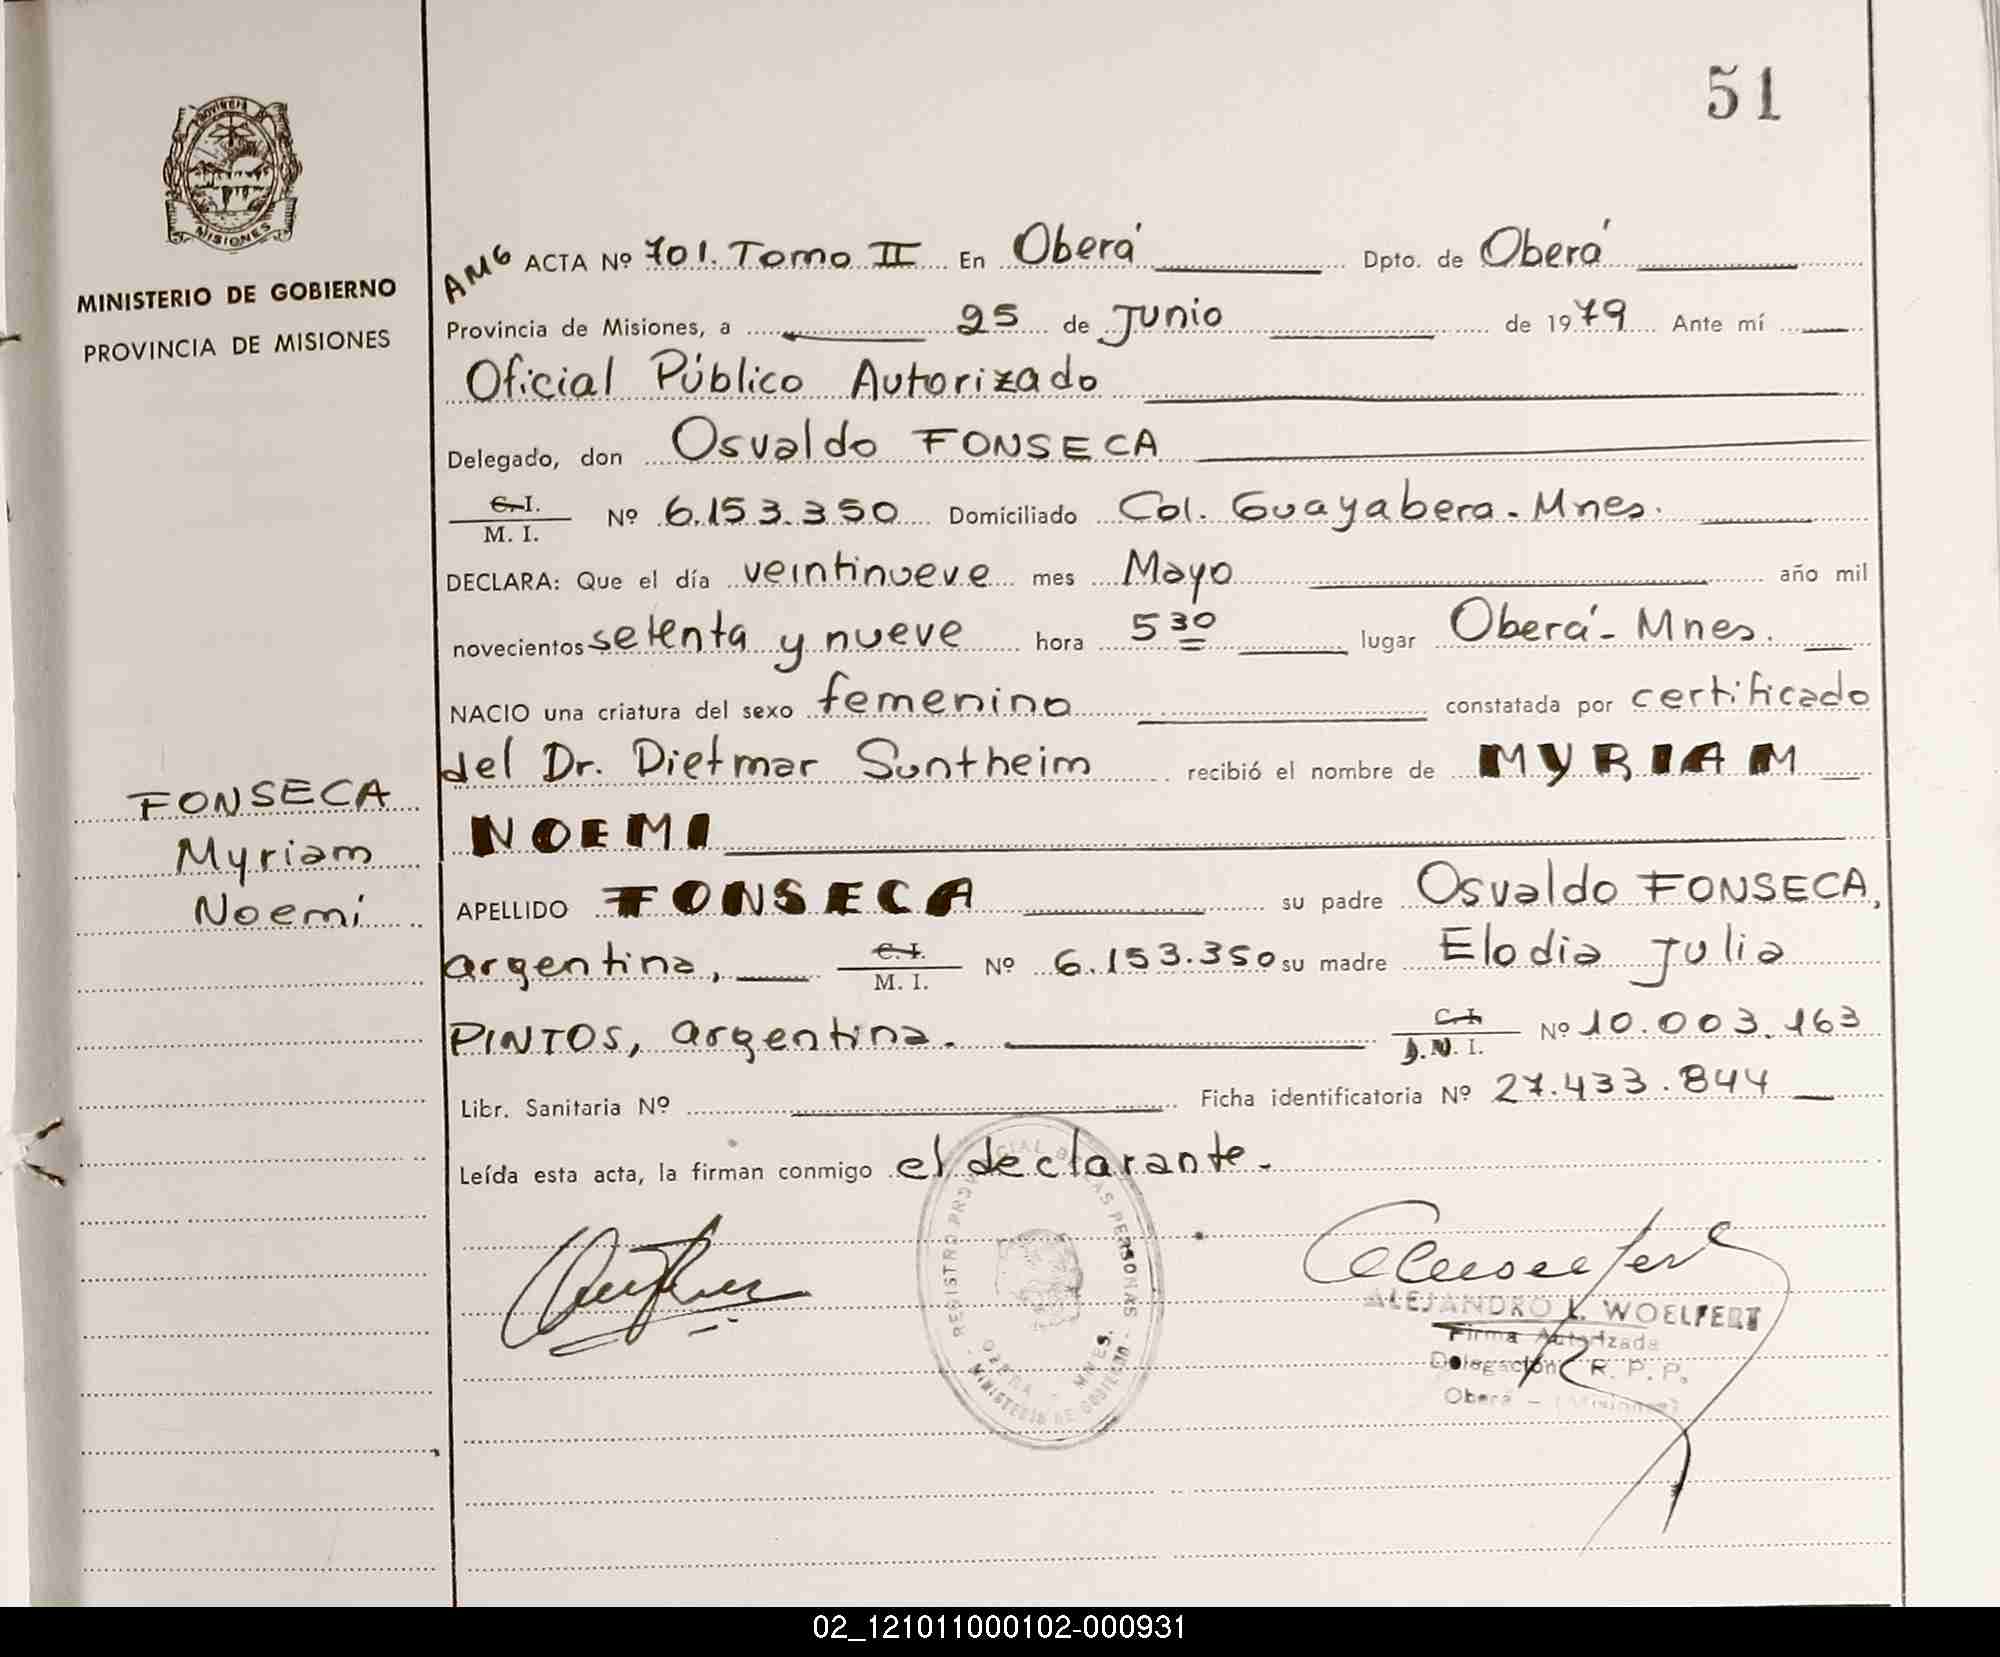 51
PROVINCIA
MISIONES
MINISTERIO DE GOBIERNO
PROVINCIA DE MISIONES
AMG ACTA Nº 701. Tomo II En Oberá Dpto. de Oberá
Provincia de Misiones, a 25 de Junio de 1979 Ante mí
Oficial Público Autorizado
Delegado, don Osvaldo FONSECA
C.I.
M. I. Nº 6.153.350 Domiciliado Col. Guayabera - Mnes.
DECLARA: Que el día veintinueve mes Mayo año mil
novecientos setenta y nueve hora 5 30 lugar Oberá - Mnes.
NACIO una criatura del sexo femenino constatada por certificado
del Dr. Dietmar Suntheim recibió el nombre de MYRIAM
NOEMI
APELLIDO FONSECA su padre Osvaldo FONSECA,
argentina, C.I.
M. I. Nº 6.153.350 su madre Elodia Julia
PINTOS, argentina. C.I.
D.N.I. Nº 10.003.163
Libr. Sanitaria Nº Ficha identificatoria Nº 27.433.844
Leída esta acta, la firman conmigo el declarante.
FONSECA
Myriam
Noemí
REGISTRO PROVINCIAL DE LAS PERSONAS
OBERA - MNES.
MINISTERIO DE GOBIERNO
ALEJANDRO L. WOELFERT
Firma Autorizada
Delegación R. P. P.
Oberá - (Misiones)
02_121011000102-000931